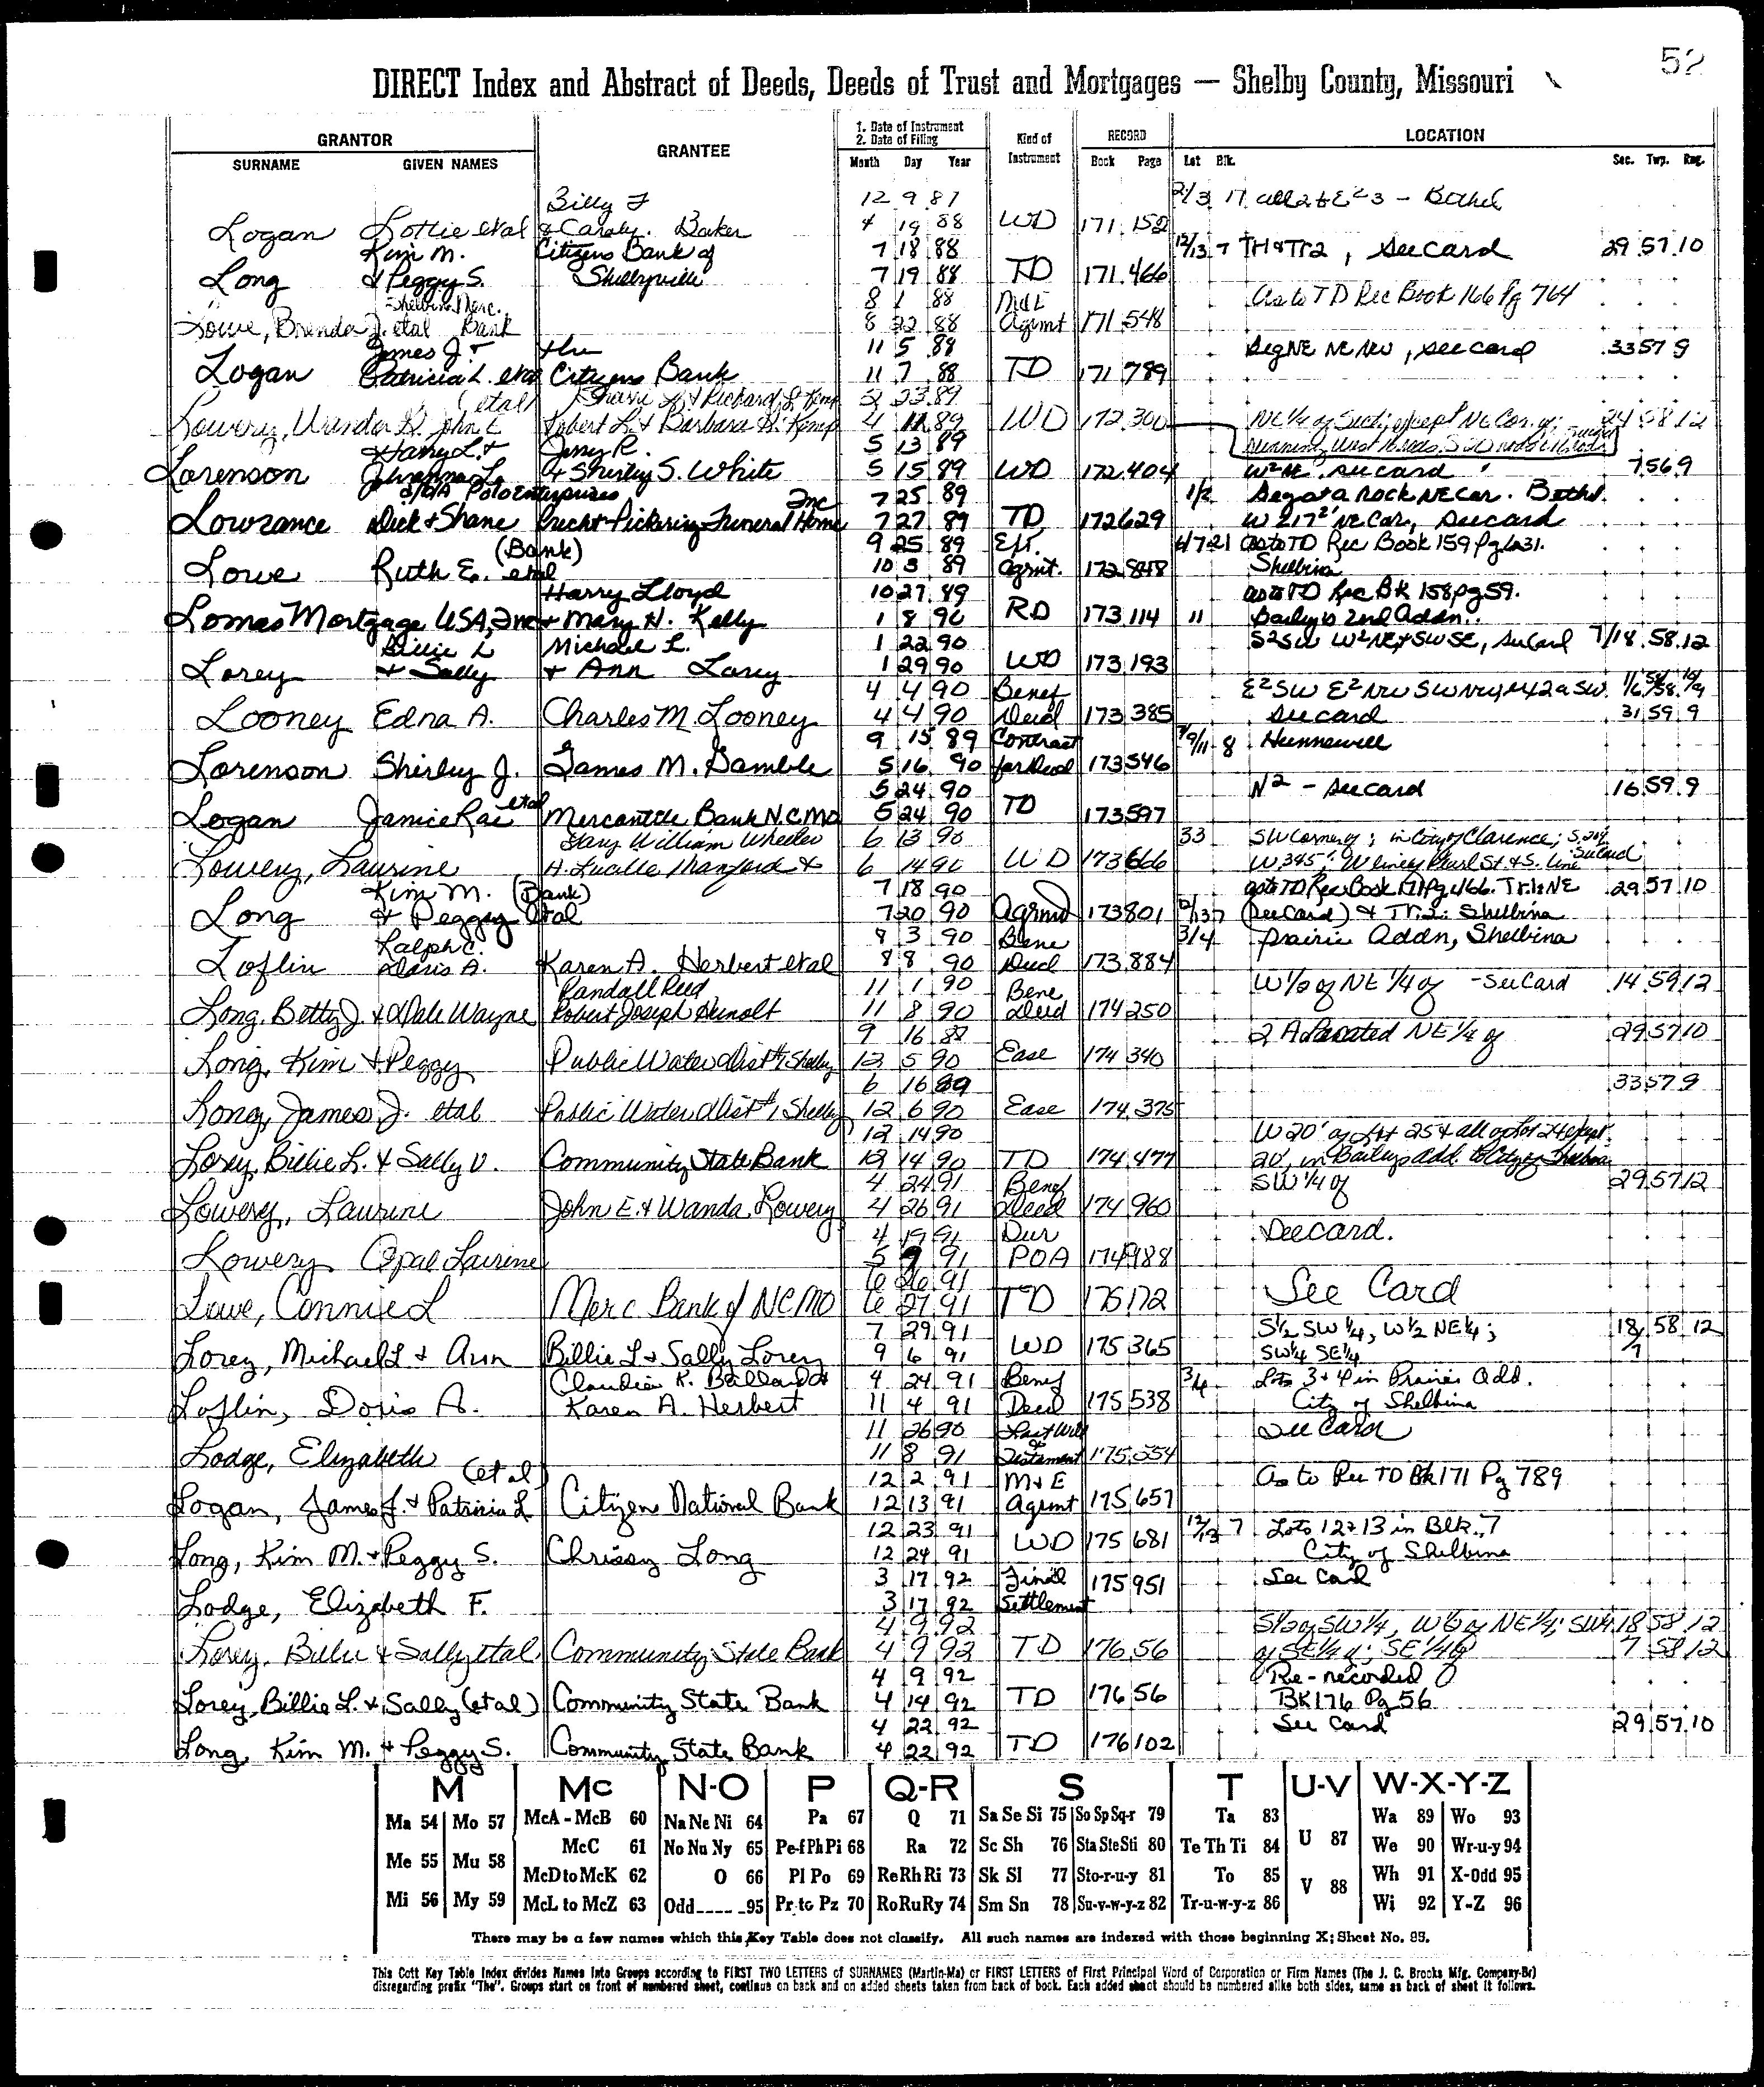 52
DIRECT Index and Abstract of Deeds, Deeds of Trust and Mortgages — Shelby County, Missouri
GRANTOR GRANTEE 1. Date of Instrument 2. Date of Filing Kind of Instrument RECORD LOCATION
SURNAME GIVEN NAMES Month Day Year Book Page Lot Blk. Sec. Twp. Rng.
Billy F 12 9 87 2/3 17 all 2 & E2 3 - Bethel
Logan Lottie etal & Carolyn Baker 4 19 88 WD 171 152
Kim M. Citizens Bank of 7 18 88 12/13 7 Tr 1 & Tr 2, See Card 29 57 10
Long & Peggy S. Shelbyville 7 19 88 TD 171 466
Shelbina Merc. 8 1 88 Mod E as to TD Rec Book 166 Pg 764
Lowe, Brenda J. etal Bank 8 22 88 Agrmt 171 548
James J. & the 11 5 88 Beg NE NE NW, see card 33 57 9
Logan Patricia L. etal Citizens Bank 11 7 88 TD 171 789
(etal) Sherrie L. & Richard L. Kemp 2 23 89
Lowery, Wanda G. John E Robert L. & Barbara D. Kemp 4 11 89 WD 172 300 NE 1/4 of Sect; except NE Cor. of; 24 58 12
Harry L. & Jerry R. 5 13 89
Lorenson & Shirley S. White 5 15 89 WD 172 404 W2 NE. see card 7 56 9
d/b/a Polo Enterprises Inc 7 25 89 1/2 Beg at a Rock NE Cor. Bethel.
Lowrance Dick & Shane Precht-Pickering Funeral Home 7 27 89 TD 172 629 W 217' NE Cor, see card
(Bank) 9 25 89 Ext. 6/7 21 as to TD Rec Book 159 Pg 631.
Lowe Ruth E. etal 10 3 89 Agrmt. 172 848 Shelbina
Harry Lloyd 10 27 89 as to TD Rec Bk 158 pg 59.
Lomas Mortgage USA, Inc & Mary H. Kelly 1 8 90 RD 173 114 11 Bailey's 2nd Addn.
Billie L Michael L. 1 22 90 S2SW W2NE & SW SE, See Card 7/18 58 12
Lorey & Sally & Ann Lorey 1 29 90 WD 173 193
4 4 90 Benef E2SW E2NW SWNW, & 42a SW.
Looney Edna A. Charles M. Looney 4 4 90 Deed 173 385 see card 31 59 9
9 15 89 Contract 7/9/11 8 Hunnewell
Lorenson Shirley J. James M. Gamble 5 16 90 for Deed 173 546
5 24 90 N2 - see card 16 59 9
Logan Janice Rae etal Mercantile Bank N.C. MO 5 24 90 TD 173 597
Gary William Wheeler 6 13 90 33 SW corner of; in City of Clarence; S. 209'
Lowery, Laurine H. Lucille Manford & 6 14 90 WD 173 666 W 345'; W line of Pearl St. & S. line See Card
Kim M. (Bank) 7 18 90 as to TD Rec Book 171 Pg 466. Tr. 1: NE 29 57 10
Long & Peggy etal 7 20 90 Agrmt 173 801 12/13 7 (See Card) & Tr. 2: Shelbina
Ralph C. 8 3 90 Bene 3/4 prairie Addn, Shelbina
Loflin Doris A. Karen A. Herbert etal 8 8 90 Deed 173 884
Randall Reed 11 1 90 Bene W 1/2 of NE 1/4 of - See Card 14 59 12
Long, Betty J & Dale Wayne Robert Joseph 11 8 90 Deed 174 250
9 16 88 2 A located NE 1/4 of 29 57 10
Long, Kim & Peggy Public Water Dist #1 Shelby 12 5 90 Ease 174 340
6 16 89 33 57 9
Long, James J. etal Public Water Dist #1 Shelby 12 6 90 Ease 174 375
12 14 90 W 20' of Lot 25 & all of Lot 24 except
Lorey, Billie L. & Sally V. Community State Bank 12 14 90 TD 174 477 20', in Bailey's add. to City of Shelbina
4 24 91 Benef SW 1/4 of 29 57 12
Lowery, Laurine John E. & Wanda Lowery 4 26 91 Deed 174 960
4 19 91 Dur See card.
Lowery Opal Laurine 5 9 91 POA 174 988
6 26 91 See Card
Lowe, Connie L Merc Bank of NCMO 6 27 91 TD 175 172
7 29 91 S1/2 SW 1/4, W1/2 NE1/4; 18/7 58 12
Lorey, Michael L & Ann Billie L & Sally Lorey 9 6 91 WD 175 365 SW1/4 SE1/4
Claudia K. Ballard & 4 24 91 Benef 3/4 Lots 3 & 4 in Prairie Add.
Loflin, Doris A. Karen A. Herbert 11 4 91 Deed 175 538 City of Shelbina
11 26 90 Last Will & See Card
Lodge, Elizabeth 11 8 91 Testament 175 554
(etal) 12 2 91 M & E As to Rec TD Bk 171 Pg 789
Logan, James J. & Patricia L Citizens National Bank 12 13 91 Agrmt 175 657
12 23 91 12/13 7 Lots 12 & 13 in Blk. 7
Long, Kim M. & Peggy S. Chrissy Long 12 24 91 WD 175 681 City of Shelbina
3 17 92 Final 175 951 See Card
Lodge, Elizabeth F. 3 17 92 Settlement
4 9 92 S1/2 of SW1/4, W1/2 of NE1/4; SW1/4 18 58 12
Lorey, Billie & Sally etal Community State Bank 4 9 92 TD 176 56 of SE1/4 of; SE 1/4 of 7 58 12
4 9 92 Re-recorded
Lorey, Billie L. & Sally (etal) Community State Bank 4 14 92 TD 176 56 BK 176 Pg 56
4 22 92 See Card 29 57 10
Long, Kim M. & Peggy S. Community State Bank 4 22 92 TD 176 102
M Mc N-O P Q-R S T U-V W-X-Y-Z
Ma 54 Mo 57 McA - McB 60 Na Ne Ni 64 Pa 67 Q 71 Sa Se Si 75 So Sp Sq-r 79 Ta 83 U 87 Wa 89 Wo 93
Me 55 Mu 58 McC 61 No Nu Ny 65 Pe-f Ph Pi 68 Ra 72 Sc Sh 76 Sta Ste Sti 80 Te Th Ti 84 We 90 Wr-u-y 94
McD to McK 62 O 66 Pl Po 69 Re Rh Ri 73 Sk Sl 77 Sto-r-u-y 81 To 85 V 88 Wh 91 X-Odd 95
Mi 56 My 59 McL to McZ 63 Odd____95 Pr to Pz 70 Ro Ru Ry 74 Sm Sn 78 Su-v-w-y-z 82 Tr-u-w-y-z 86 Wi 92 Y-Z 96
There may be a few names which this Key Table does not classify. All such names are indexed with those beginning X; Sheet No. 95.
This Cott Key Table Index divides Names Into Groups according to FIRST TWO LETTERS of SURNAMES (Martin-Ma) or FIRST LETTERS of First Principal Word of Corporation or Firm Names (The J. C. Brooks Mfg. Company-Br)
disregarding prefix "The". Groups start on front of numbered sheet, continue on back and on added sheets taken from back of book. Each added sheet should be numbered alike both sides, same as back of sheet it follows.